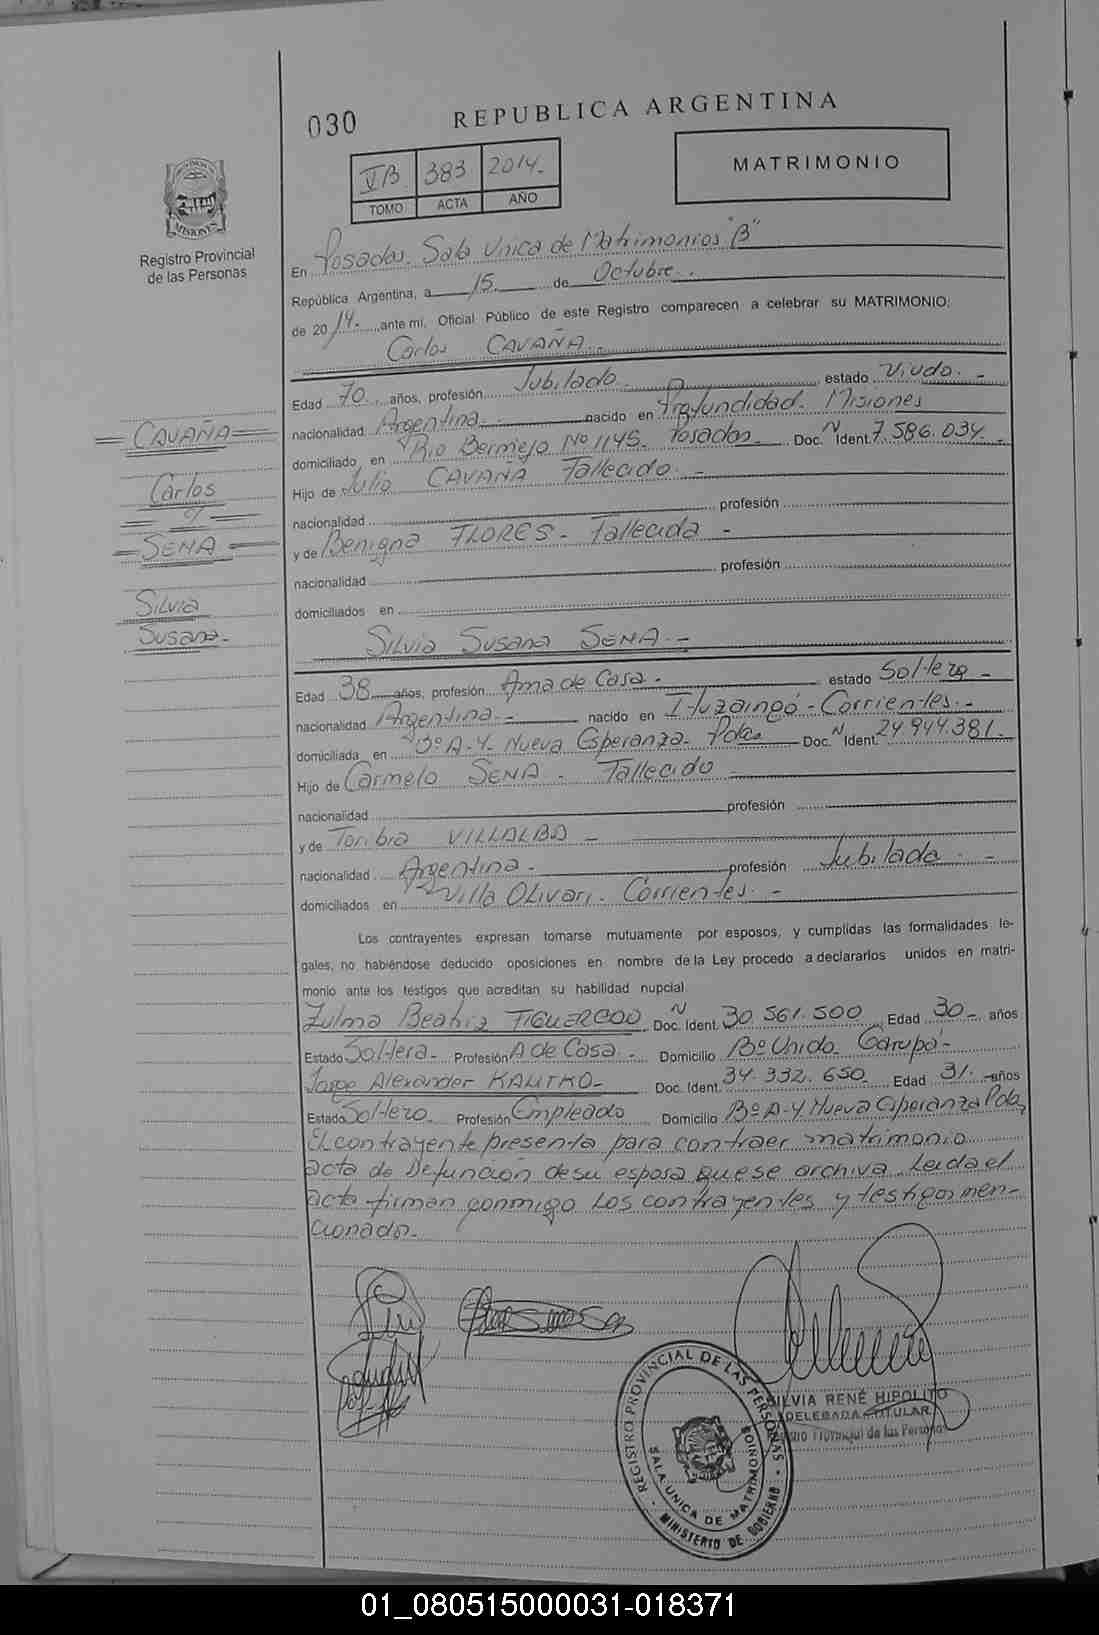 030 REPUBLICA ARGENTINA
VB 383 2014.-
TOMO ACTA AÑO
MATRIMONIO
Registro Provincial
de las Personas
En Posadas. Sala Unica de Matrimonios "B"
República Argentina, a 15 de Octubre.
de 20 14. ante mí, Oficial Público de este Registro comparecen a celebrar su MATRIMONIO:
Carlos CAVAÑA.
Edad 70 años, profesión Jubilado estado Viudo. -
nacionalidad Argentina. nacido en Profundidad. Misiones
domiciliado en Rio Bermejo Nº 1145. Posadas Doc. N Ident. 7.586.034
Hijo de Julio CAVAÑA Fallecido. -
nacionalidad profesión
y de Benigna FLORES - Fallecida -
nacionalidad profesión
domiciliados en
CAVAÑA
Carlos
y
SENA
Silvia
Susana.-
Silvia Susana SENA. -
Edad 38 años, profesión Ama de Casa. - estado Soltera -
nacionalidad Argentina. - nacido en Ituzaingó - Corrientes. -
domiciliada en Bº A-4. Nueva Esperanza- Pdas Doc. N Ident. 24.944.381.-
Hijo de Carmelo SENA - Fallecido
nacionalidad profesión
y de Toribia VILLALBA -
nacionalidad Argentina. - profesión Jubilada. -
domiciliados en Villa Olivari. Corrientes. -
Los contrayentes expresan tomarse mutuamente por esposos, y cumplidas las formalidades le-
gales, no habiéndose deducido oposiciones en nombre de la Ley procedo a declararlos unidos en matri-
monio ante los testigos que acreditan su habilidad nupcial
Zulma Beatriz FIGUEREDO Doc. N Ident. 30.561.500 Edad 30- años
Estado Soltera- Profesión A de Casa. Domicilio Bº Unido- Garupá-
Jorge Alexander KALITKO- Doc. Ident. 34.332.650 Edad 31.- años
Estado Soltero. Profesión Empleado Domicilio Bº A-4 Nueva Esperanza Pdas
El contrayente presenta para contraer matrimonio
acta de Defunción de su esposa que se archiva. Leida el
acta firman conmigo los contrayentes y testigos men-
cionados.-
SILVIA RENÉ HIPOLITO
DELEGADA TITULAR
Registro Provincial de las Personas
REGISTRO PROVINCIAL DE LAS PERSONAS - MINISTERIO DE GOBIERNO -
SALA UNICA DE MATRIMONIOS
01_080515000031-018371